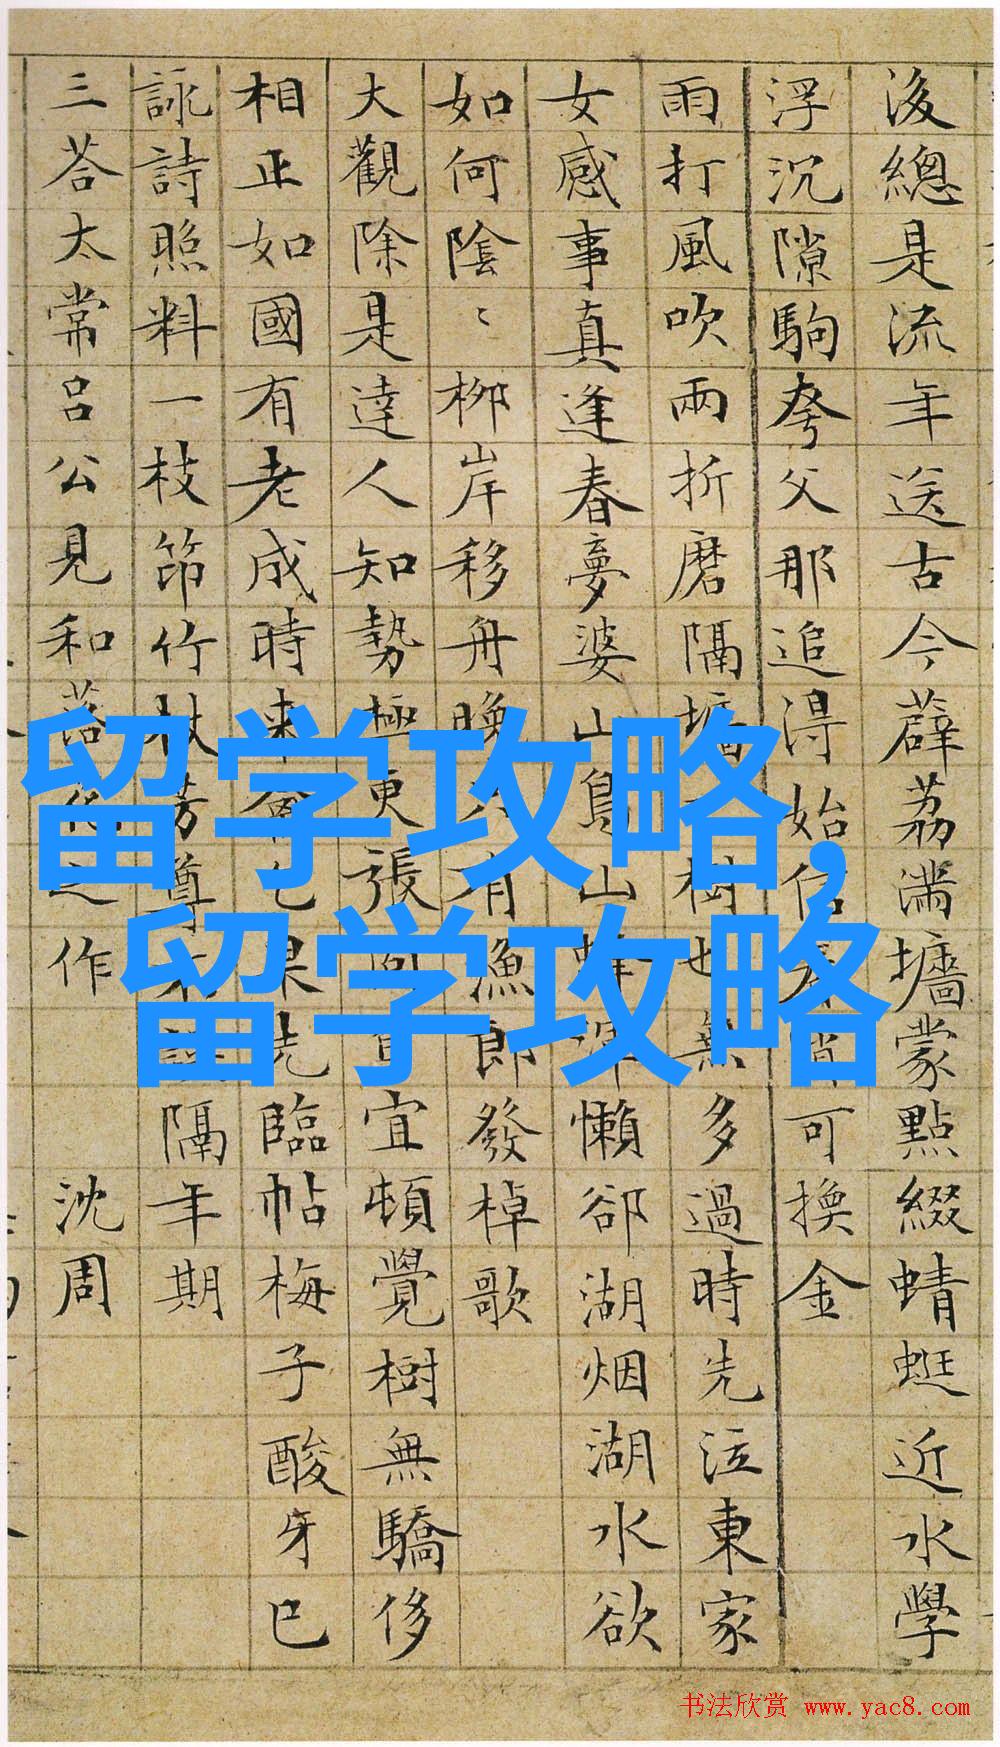 後總是流年送古今薜荔滿墻蒙點綴蜻蜓近水學
浮沉隙駒夸父那追得始信可換金
雨打風吹兩折磨隔墻樹也無多過時先泣東家
女感事真逢春夢婆山鳥山懶卻湖烟湖水欲
如何陰〻柳岸移舟晚有漁郎發棹歌
大觀除是達人知勢極更張宜頓覺樹無驕侈
相正如國有老成時來會已果先臨帖梅子酸牙已
詠詩照料一枝笻竹杖芳尊隔年期
三荅太常呂公見和落花之作
沈周
留学攻略,
留学攻略
书法欣赏 www.yac8.com